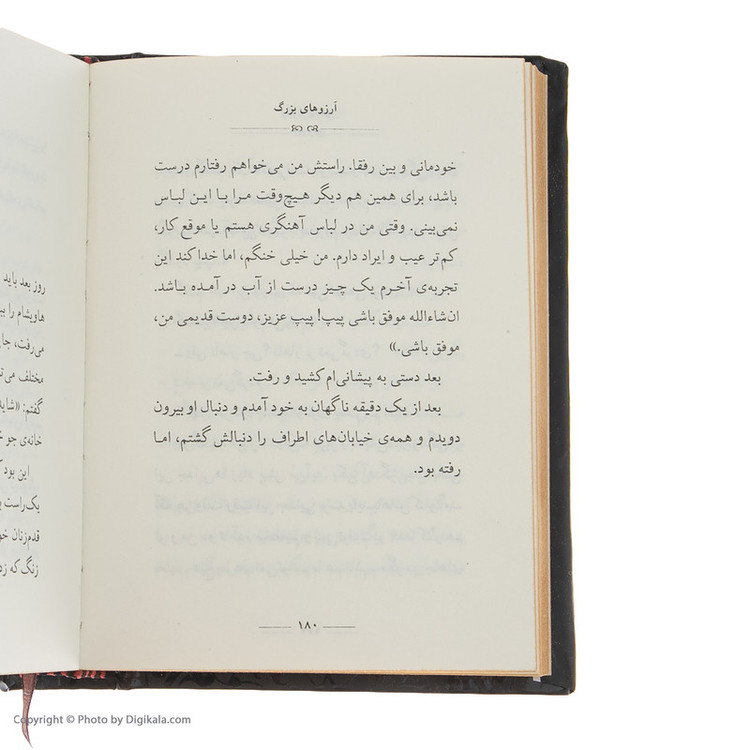 آرزوهای بزرگ
خودمانی و بین رفقا. راستش من می‌خواهم رفتارم درست
باشد، برای همین هم دیگر هیچ‌وقت مرا با این لباس
نمی‌بینی. وقتی من در لباس آهنگری هستم یا موقع کار،
کم‌تر عیب و ایراد دارم. من خیلی خنگم، اما خدا کند این
تجربه‌ی آخرم یک چیز درست از آب در آمده باشد.
ان‌شاءالله موفق باشی پیپ! پیپ عزیز، دوست قدیمی من،
موفق باشی.»
بعد دستی به پیشانی‌ام کشید و رفت.
بعد از یک دقیقه ناگهان به خود آمدم و دنبال او بیرون
دویدم و همه‌ی خیابان‌های اطراف را دنبالش گشتم، اما
رفته بود.
۱۸۰
روز بعد باید
هاویشام را
می‌رفت،
مختلف
گفتم: «شاید
خانه‌ی جو
این بود
یک‌راست
قدم‌زنان
زنگ که
Copyright © Photo by Digikala.com